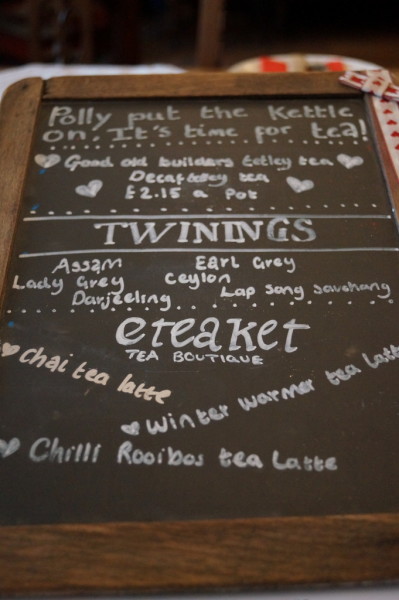 Polly put the Kettle
on! It's time for tea!
Good old builders tetley tea
Decaf tetley tea
£2.15 a Pot
TWININGS
Assam Earl Grey
Lady Grey Ceylon
Darjeeling Lap sang souchang
eteaket
TEA BOUTIQUE
Chai tea latte
Winter warmer tea Latte
Chilli Rooibos tea Latte